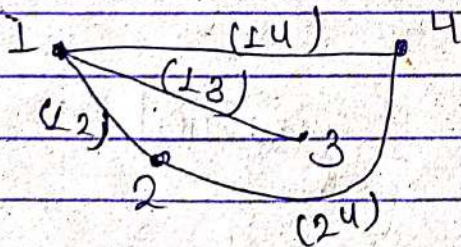 1 (14) 4
(13)
(12)
3
2
(24)